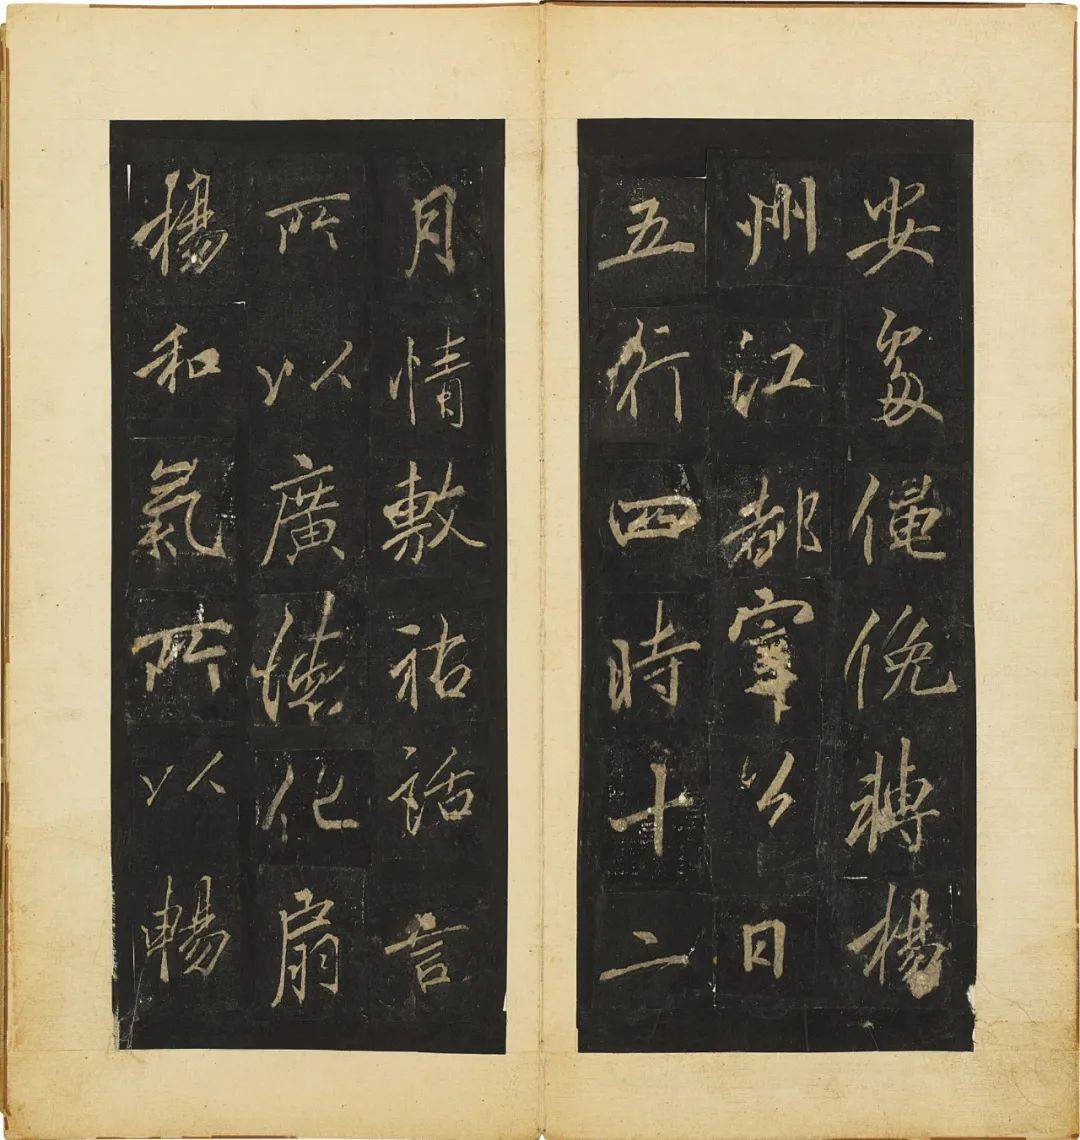 安處僶俛轉楊
州江都宰公曰
五行四時十二
月情敷祐話言
所以廣德化扇
揚和氣所以暢